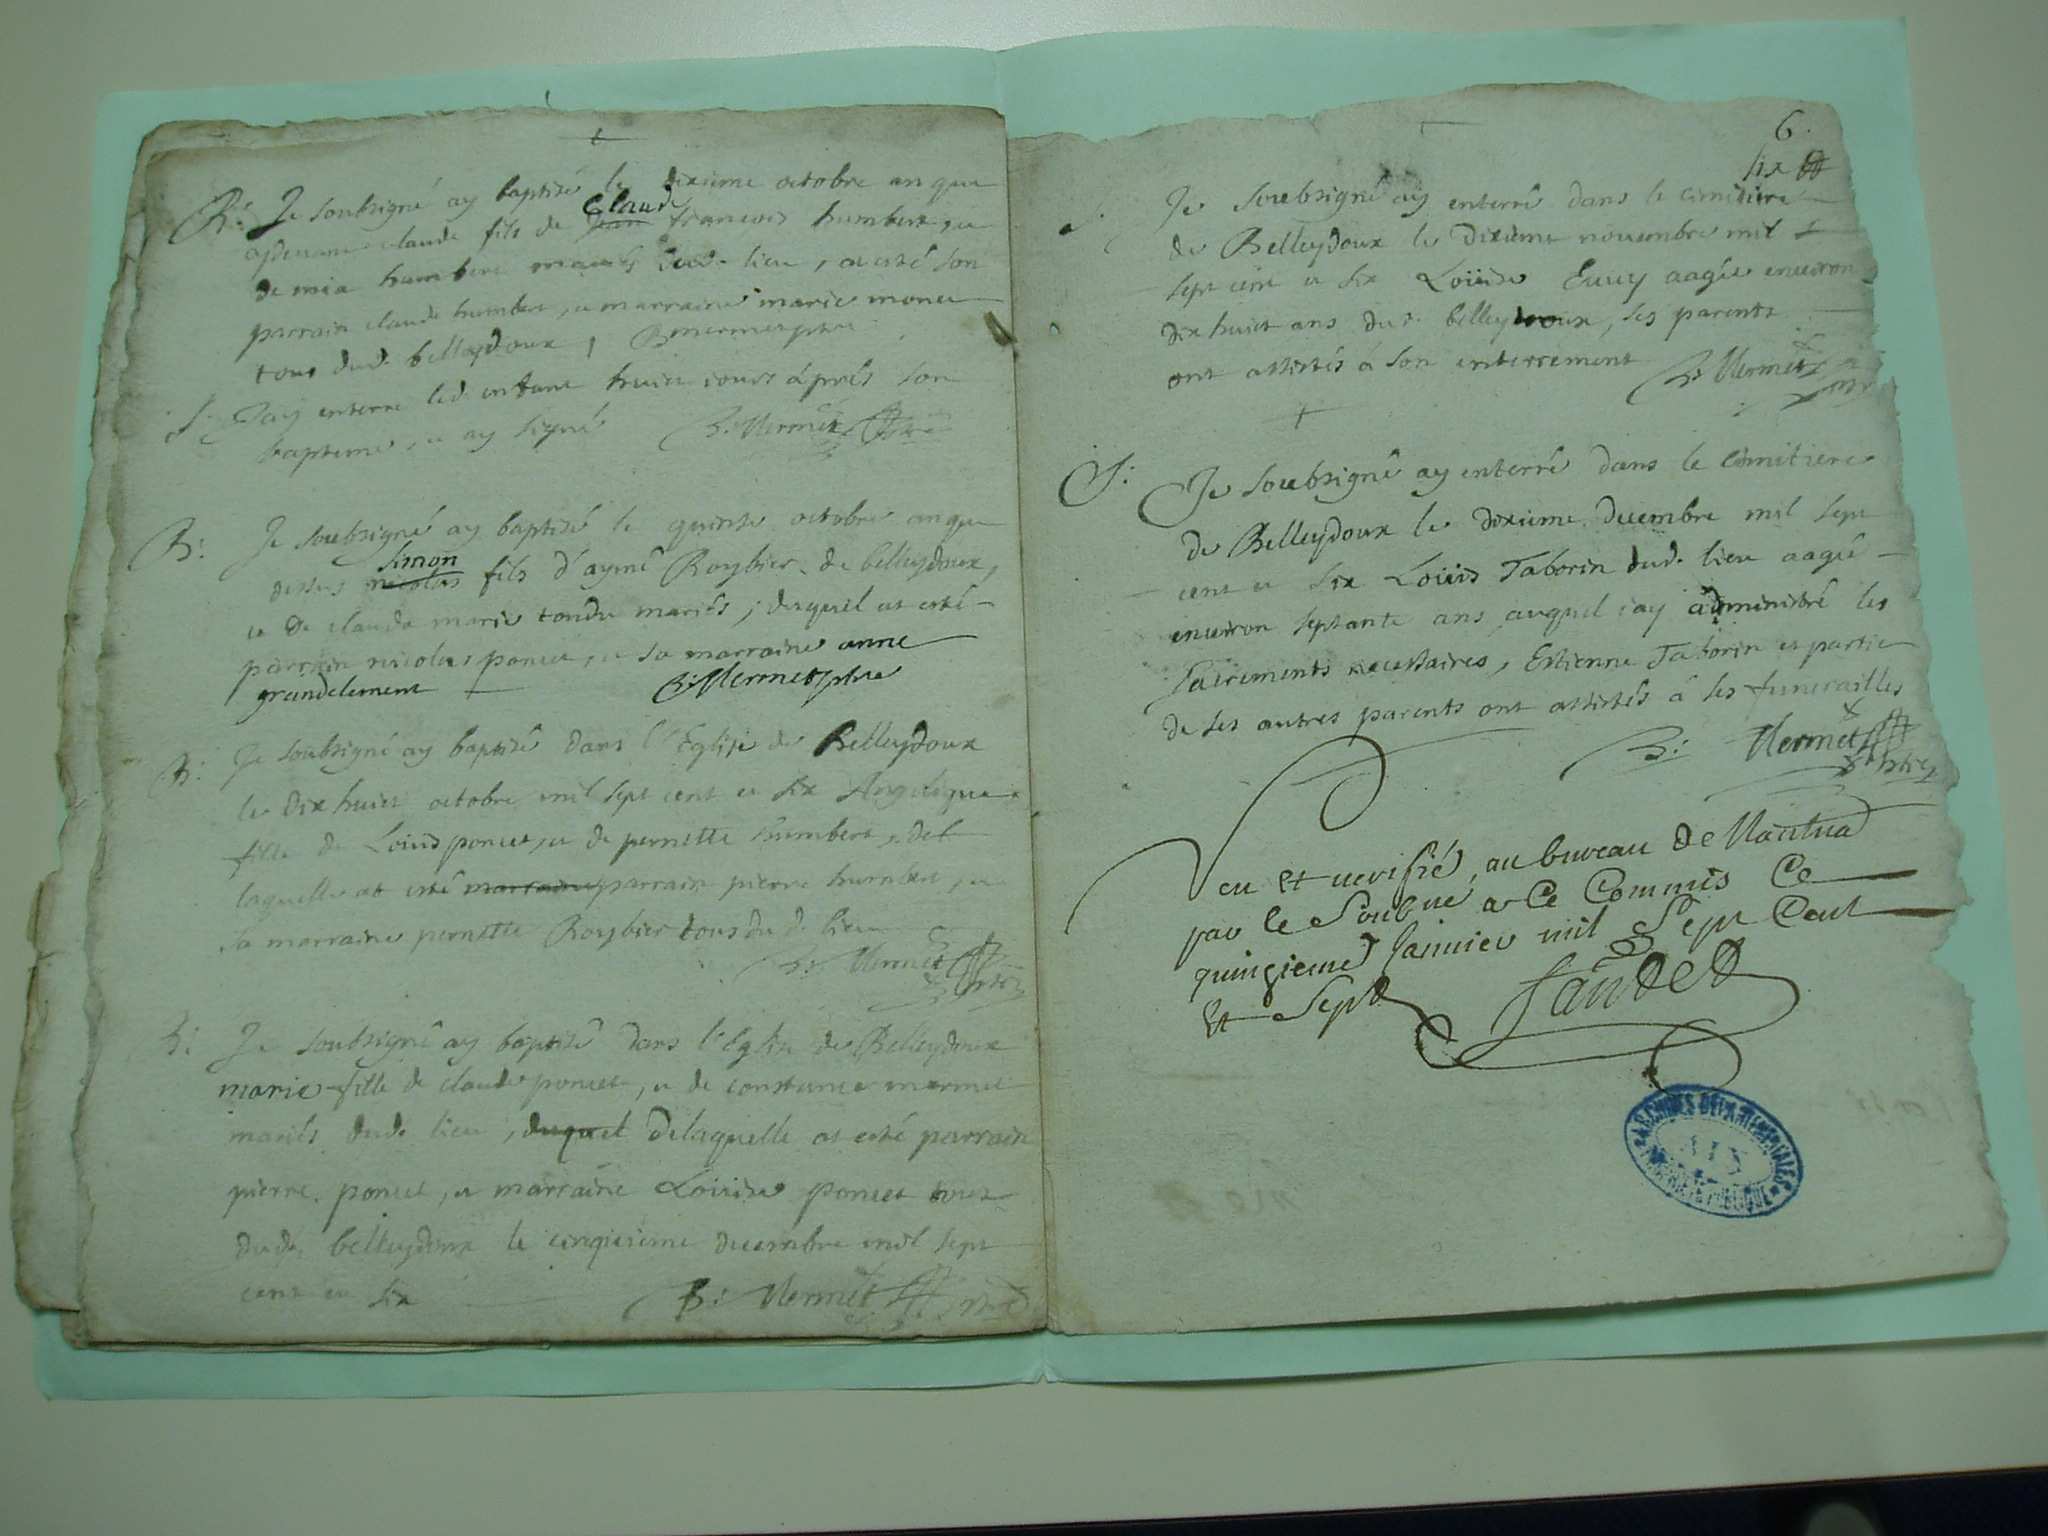 B: Je soubsigné ay baptisé le dixieme octobre an que
claude
claude fils de jean francois humbert, et
de mia humbert mariés dud. lieu, at esté son
parrain claude humbert, et marraine marie monet
tous dud. belleydoux, B: mermet ptre
S: J'ay enterré led. enfant huict iours áprés son
bapteme, et ay signé B: Mermet ptre
B: Je soubsigné ay baptisé le quinse octobre an que
simon
dessus nicolas fils d'aymé Roybier de belleydoux,
et de claude marie tondu mariés, duquel at esté
parrain nicolas poncet, et sa marraine anne
grandclement B: Mermet ptre
B: Je soubsigné ay baptisé dans l'Eglise de Belleydoux
le dix huict octobre mil sept cent et six Angelique
fille de Loüis poncet, et de pernette humbert, de
laquelle at esté marraine parrain pierre humbert, et
sa marraine pernette Roybier tous du d. lieu
B: Mermet ptre
B: Je soubsigné ay baptisé dans l'Eglise de Belleydoux
marie fille de claude poncet, et de constance mermet
mariés dud. lieu, duquel delaquelle at esté parrain
pierre poncet, et marraine Loüise poncet tous
dud. belleydoux le cinquieme decembre mil sept
cent et six B: Mermet ptre
6.
six
Je soubsigné ay enterré dans le cimitiere
de Belleydoux le dixieme novembre mil
sept cent et six Loüise Evuy aagée environ
dix huict ans du d. belleydoux, ses parents
ont assistés á son enterrement B: Mermet ptre
S: Je soubsigné ay enterré dans le cimitiere
de Belleydoux le dixieme decembre mil sept
cent et six Loüis Taborin dud. lieu aagé
environ septante ans auquel i'ay administré les
sacrements necessaires, Estienne Taborin et partie
de ses autres parents ont assistés á ses funerailles
B: Mermet ptre
Veu et verifié, au bureau de Nantua
par le Soubne a Ce Commis Ce
quinzieme Janvier mil Sept Cent
Et Sept
ARCHIVES DEPARTEMENTALES